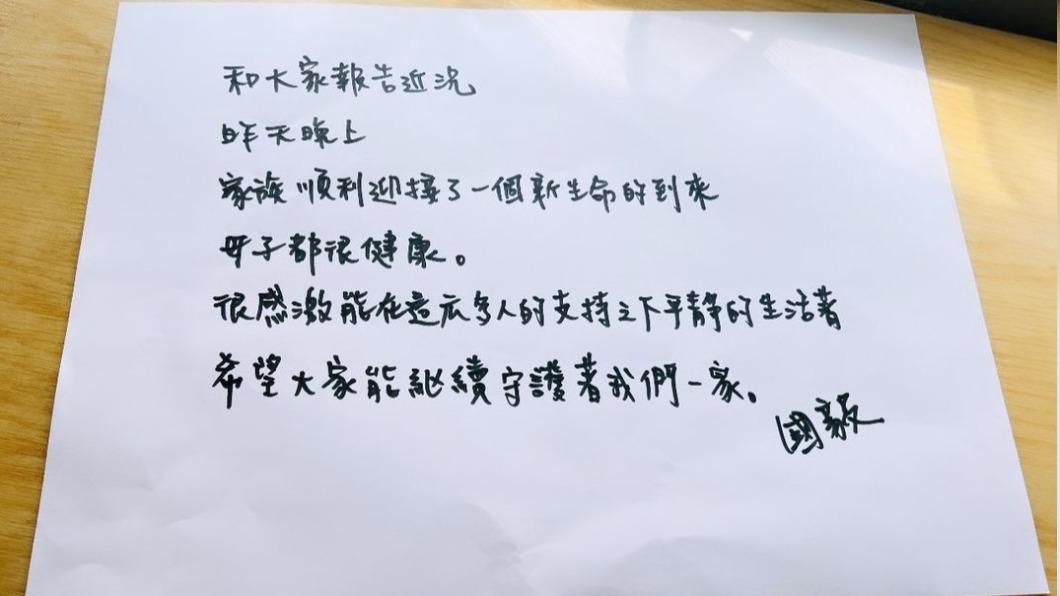 和大家報告近況
昨天晚上
家族順利迎接了一個新生命的到來
母子都很健康。
很感激能在這広多人的支持之下平靜的生活著
希望大家能継續守護著我們一家。
國毅